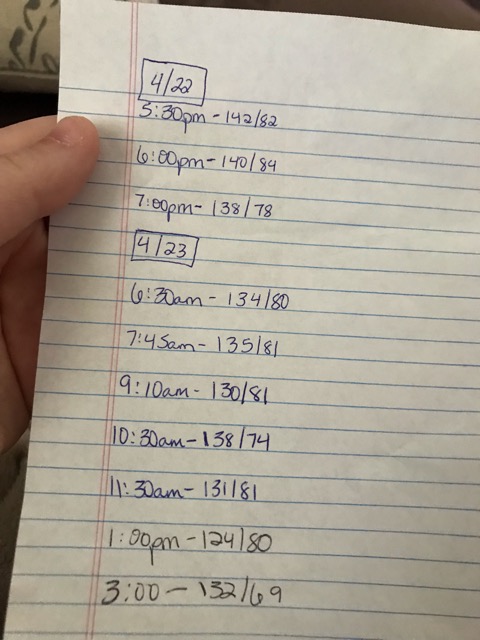 4/22
5:30pm - 142/82
6:00pm - 140/84
7:00pm - 138/78
4/23
6:30am - 134/80
7:45am - 135/81
9:10am - 130/81
10:30am - 138/74
11:30am - 131/81
1:00pm - 124/80
3:00 - 132/69